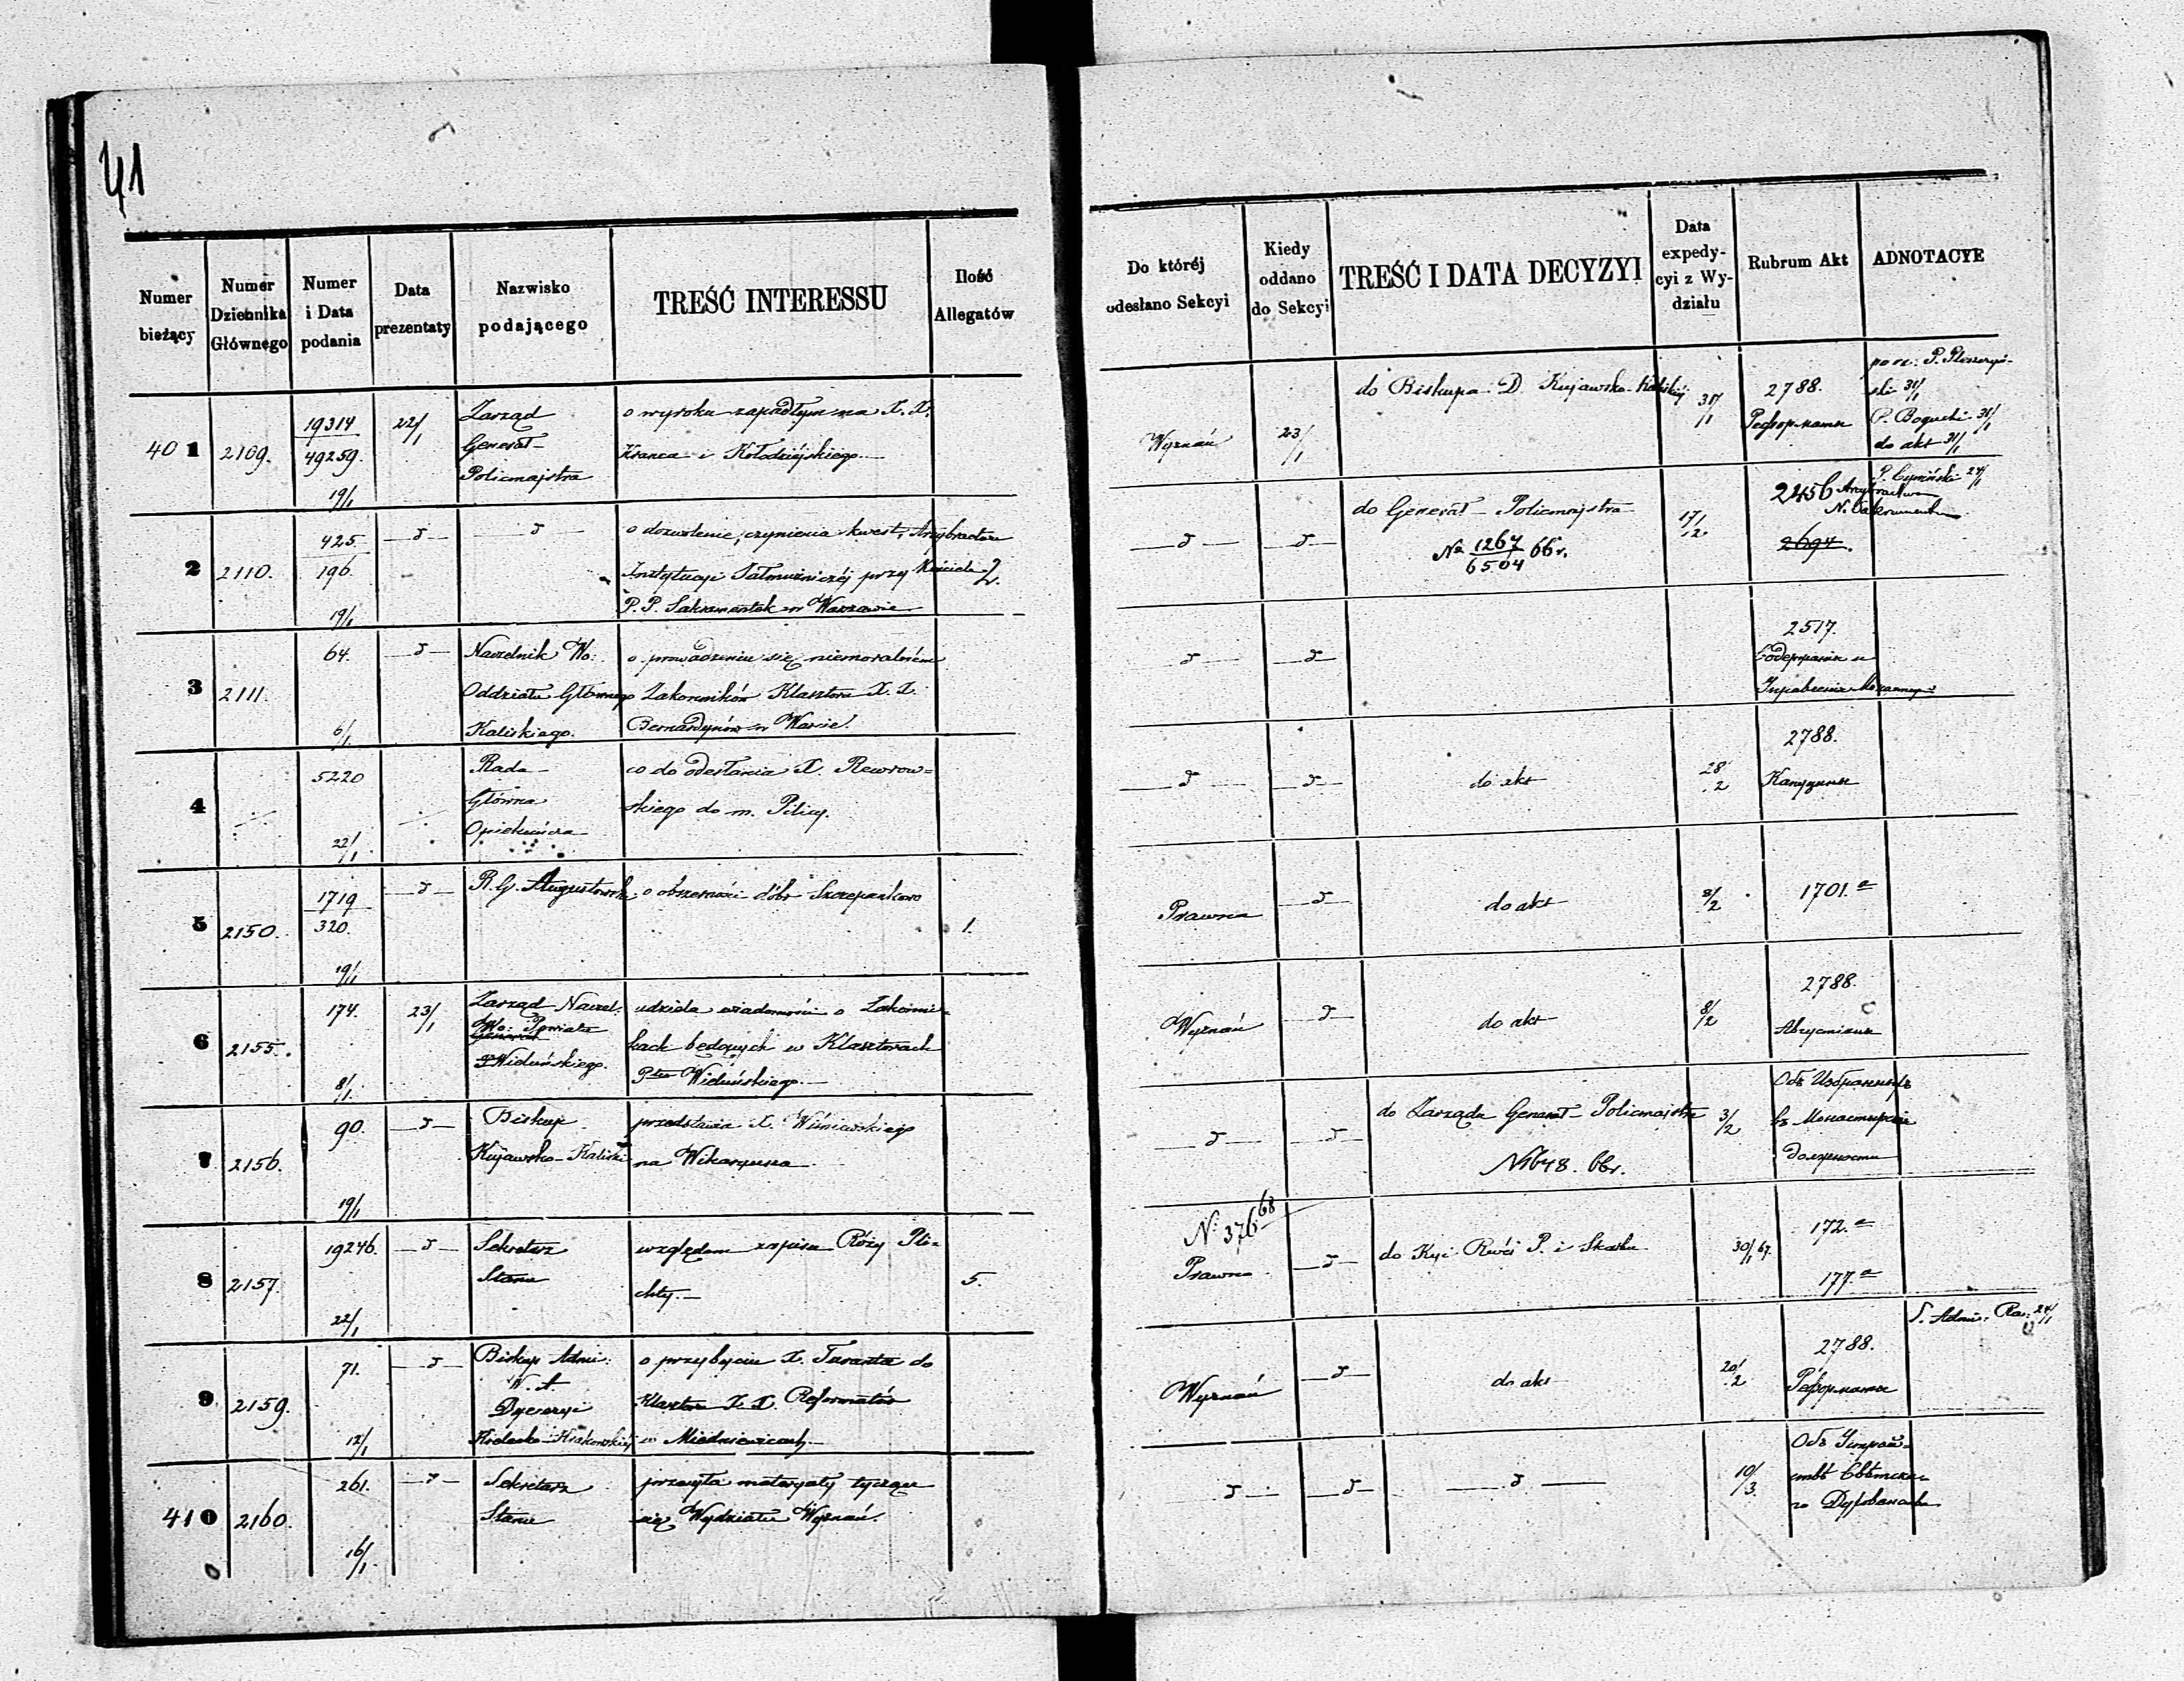 41
Numer bieżący
Numer Dziennika Głównego
Numer i Data podania
Data prezentaty
Nazwisko podającego
TREŚĆ INTERESSU
Ilość Allegatów
Do której odesłano Sekcyi
Kiedy oddano do Sekcyi
TREŚĆ I DATA DECYZYI
Data expedycyi z Wydziału
Rubrum Akt
ADNOTACYE
401
2109.
19314
49259.
19/1
22/1
Zarząd
Generał-
Policmajstra
o wyroku zapadłym na X. X.
Kranca i Kołodziejskiego.
Wyznań
23/1
do Biskupa D. Kujawsko-Kaliskiej
31/1
2788.
Реформати
31/1
P. Bogucki 31/1
do akt 31/1
2
2110.
425.
196.
19/1
o dozwolenie czynienia kwesty Arcybractwu
Instytucyi Jałmużniczej przy Kościele
P. P. Sakramentek w Warszawie
2.
do Generał-Policmajstra
№ 1267/6504 66 r.
17/2
2456
2694.
P. Cypriński 24/1
3
2111.
64.
6/1
Naczelnik Wo:
Oddziału Głównego
Kaliskiego.
o prowadzeniu się niemoralném
Zakonników Klasztoru X. X.
Bernardynów w Warcie.
2517.
4
5220
22/1
Rada
Główna
Opiekuńcza
co do odesłania X. Rewrow=
skiego do m. Pilicy.
do akt
28/2
2788.
5
2150.
1719
320.
19/1
R. G. Augustowski
o obszerności dóbr Szczepankowo
1.
Prawna
do akt
8/2
1701. a
6
2155.
174.
8/1
23/1
Zarząd Naczel.
Wo: Powiatu
Wieluńskiego.
udziela wiadomości o Zakonni-
kach będących w Klasztorach
Ptu Wieluńskiego.
Wyznań
do akt
8/2
2788.
7
2156.
90.
19/1
Biskup
Kujawsko-Kaliski
przedstawia X. Wiśniewskiego
na Wikaryusza
do Zarządu Generał-Policmajstra
№ 1648. 66 r.
3/2
Объ Избраніи
въ Монастырскія
должности
8
2157.
19246.
22/1
Sekretarz
Stanu
względem zapisu Róży Pli=
chty.
5.
N: 376 68
Prawna
do Kyi Rwéj P. i Skarbu
30/1 67.
172. a
177. a
9
2159.
71.
12/1
Biskup Admi:
W. A.
Dyecezyi
Kielecko-Krakowskiej
o przybyciu X. Taranta do
Klasztoru X. X. Reformatów
w Miedniewicach.
Wyznań
do akt
20/2
2788.
Реформати
24/1
410
2160.
261.
16/1
Sekretarz
Stanu
przesyła materyały tyczące
się Wydziału Wyznań.
10/3.
Духовенства